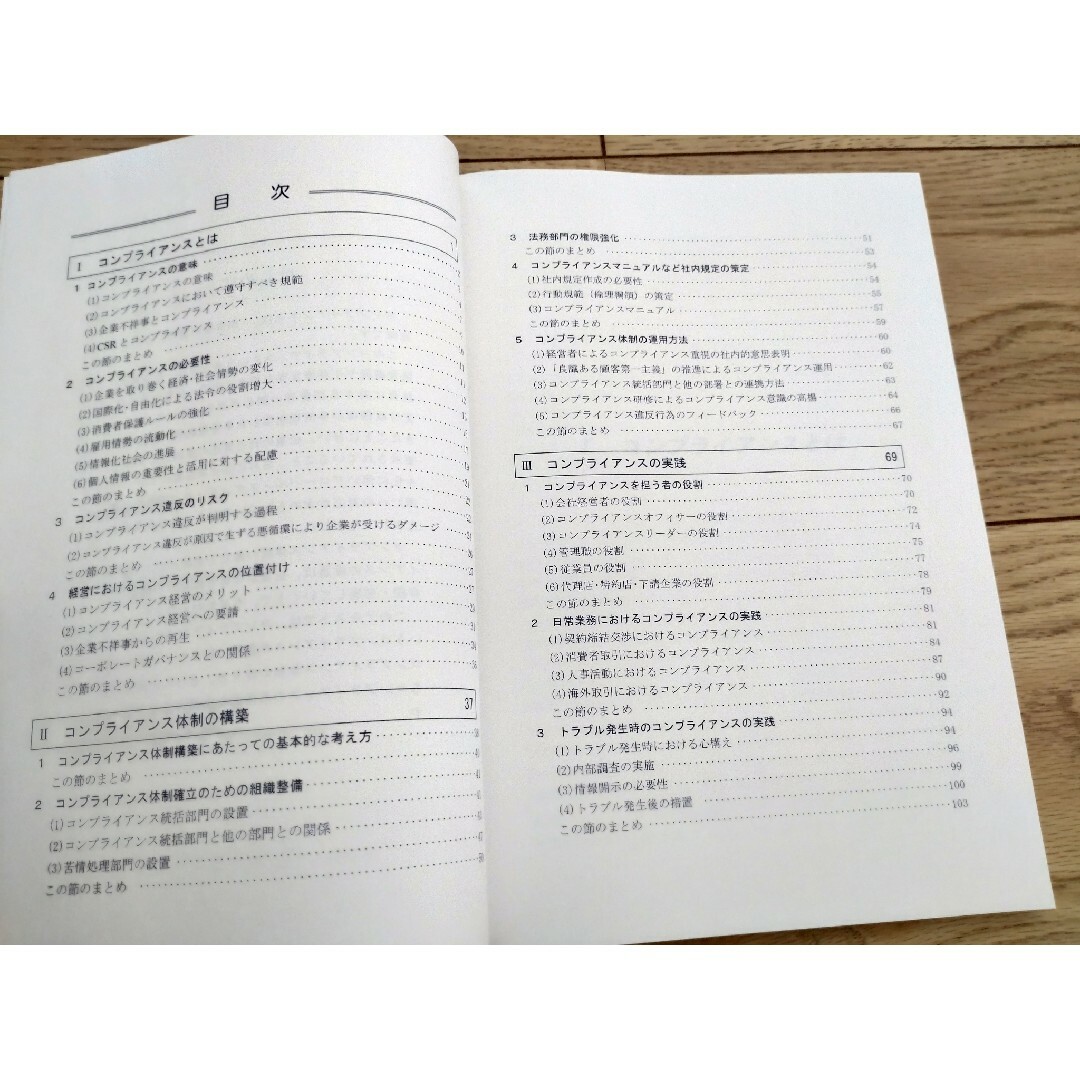 目 次
Ⅰ コンプライアンスとは
1 コンプライアンスの意味
(1)コンプライアンスの意味
(2)コンプライアンスにおいて遵守すべき規範
(3)企業不祥事とコンプライアンス
(4)CSRとコンプライアンス
この節のまとめ
2 コンプライアンスの必要性
(1)企業を取り巻く経済・社会情勢の変化
(2)国際化・自由化による法令の役割増大
(3)消費者保護ルールの強化
(4)雇用情勢の流動化
(5)情報化社会の進展
(6)個人情報の重要性と活用に対する配慮
この節のまとめ
3 コンプライアンス違反のリスク
(1)コンプライアンス違反が判明する過程
(2)コンプライアンス違反が原因で生ずる悪循環により企業が受けるダメージ
この節のまとめ
4 経営におけるコンプライアンスの位置付け
(1)コンプライアンス経営のメリット
(2)コンプライアンス経営への要請
(3)企業不祥事からの再生
(4)コーポレートガバナンスとの関係
この節のまとめ
Ⅱ コンプライアンス体制の構築 37
1 コンプライアンス体制構築にあたっての基本的な考え方
この節のまとめ
2 コンプライアンス体制確立のための組織整備
(1)コンプライアンス統括部門の設置
(2)コンプライアンス統括部門と他の部門との関係
(3)苦情処理部門の設置
この節のまとめ
3 法務部門の権限強化 51
この節のまとめ 53
4 コンプライアンスマニュアルなど社内規定の策定 54
(1)社内規定作成の必要性 54
(2)行動規範（倫理綱領）の策定 55
(3)コンプライアンスマニュアル 57
この節のまとめ 59
5 コンプライアンス体制の運用方法 60
(1)経営者によるコンプライアンス重視の社内的意思表明 60
(2)「良識ある顧客第一主義」の推進によるコンプライアンス運用 62
(3)コンプライアンス統括部門と他の部署との連携方法 63
(4)コンプライアンス研修によるコンプライアンス意識の高揚 64
(5)コンプライアンス違反行為のフィードバック 66
この節のまとめ 67
Ⅲ コンプライアンスの実践 69
1 コンプライアンスを担う者の役割 70
(1)会社経営者の役割 70
(2)コンプライアンスオフィサーの役割 72
(3)コンプライアンスリーダーの役割 74
(4)管理職の役割 75
(5)従業員の役割 77
(6)代理店・特約店・下請企業の役割 78
この節のまとめ 79
2 日常業務におけるコンプライアンスの実践 81
(1)契約締結交渉におけるコンプライアンス 81
(2)消費者取引におけるコンプライアンス 84
(3)人事活動におけるコンプライアンス 87
(4)海外取引におけるコンプライアンス 90
この節のまとめ 92
3 トラブル発生時のコンプライアンスの実践 94
(1)トラブル発生時における心構え 94
(2)内部調査の実施 96
(3)情報開示の必要性 99
(4)トラブル発生後の措置 100
この節のまとめ 103